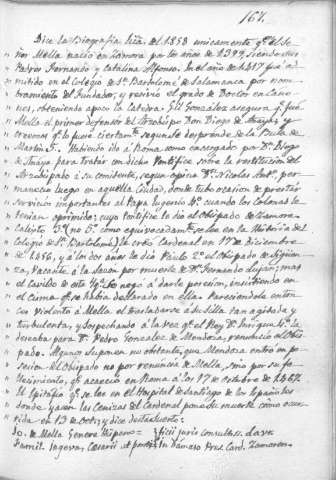 167.
Dice la Biografía Ecca. de 1858 unicamente qe. el Se-
" ñor Mella nació en Zamora por los años de 1397, siendo sus
" Padres Fernando y Catalina Alfonso. En el año de 1417 fué ad-
" mitido en el Colegio de Sn. Bartolomé de Salamanca por nom-
" bramiento del Fundador, y recivió el grado de Doctor en Cano-
" nes, obteniendo apoco la Catedra. Gil González asegura qe. fué
" Mella el primer defensor del Arzobispo Don Diego de Anaya, y
" creemos qe. lo fuese ciertamte. segun se desprende de la Bula de
" Martin 5. Habiendo ido á Roma como encargado por Dn. Diego
" de Anaya para tratar con dicho Pontifice sobre la restitucion del
" Arzobispado á su comitente, segun opina Dn. Nicolas Anto. per-
" maneció luego en aquella Ciudad, donde tubo ocasion de prestar
" servicios importantes al Papa Eugenio 4º cuando los Colonas le
" tenian oprimido; cuyo Pontifice le dió el Obispado de Zamora.
" Calisto 3º (no 5º como equivocadamte. se lee en la Historia del
" Colegio de Sn. Bartolomé) le creó Cardenal en 17 de Diciembre
" de 1456, y á los dos años le dió Paulo 2º el Obispado de Sigüen-
" za, vacante á la sazon por muerte de Dn. Fernando Lujan; mas
" el Cavildo de esta Yga. se negó á darle posesion, insistiendo en
" el Cisma qe. se habia declarado en ella. Pareciendole enton
" ces violento á Mella el trasladarse á su Silla tan agitada y
" turbulenta, y sospechando á la vez qe. el Rey Dn. Enrique 4º la
" deseaba para Dn. Pedro Gonzalez de Mendoza, renunció el Obis-
" pado. Algunos suponen no obstante, que Mendoza entró en po-
" sesion el Obispado no por renuncia de Mella, sino por su fa-
" llecimiento, qe. acaeció en Roma á los 17 de Octubre de 1467.
" El Epitafio qe. se lee en el Hospital de Santiago de los Españoles
" donde yacen las Cenizas del Cardenal pone su muerte como ocur-
" rida en 13 de Octe. y dice de esta suerte:
" Jo. de Mella Genere Hispano